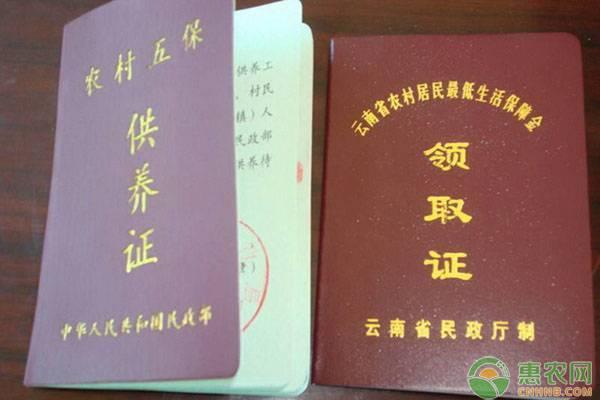 农村五保
供养证
中华人民共和国民政部
供养工
、村民
镇）人
民政部
供养待
云南省农村居民最低生活保障金
领取证
云南省民政厅制
惠农网
CNHNB.COM